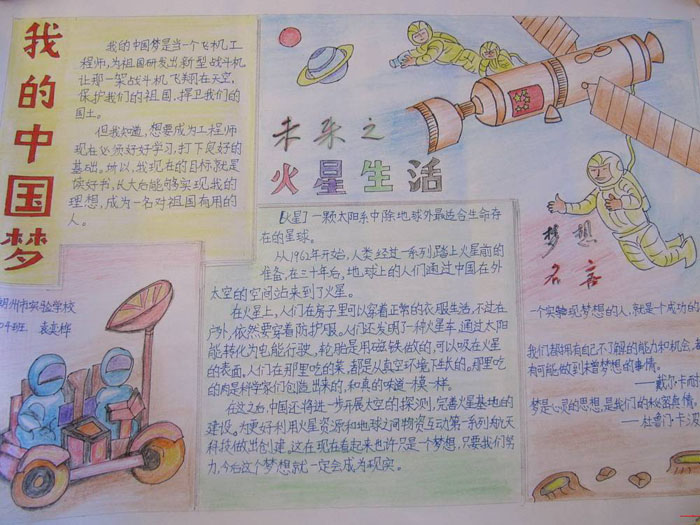 我的中国梦
我的中国梦是当一个飞机工
程师,为祖国研发出新型战斗机
让那一架战斗机飞翔在天空,
保护我们的祖国,捍卫我们的
国土。
但我知道,想要成为工程师
现在必须好好学习,打下良好的
基础。所以,我现在的目标就是
读好书,长大后能够实现我的
理想,成为一名对祖国有用的
人。
州市实验学校
未来之
火星生活
【火星】一颗太阳系中除地球外最适合生命存
在的星球。
从1962年开始,人类经过一系列踏上火星前的
准备,在三十年后,地球上的人们通过中国在外
太空的空间站来到了火星。
在火星上,人们在房子里可以穿着正常的衣服生活,不过在
户外,依然要穿着防护服。人们还发明了一种火星车,通过太阳
能转化为电能行驶,轮胎是用磁铁做的,可以吸在火星
的表面,人们在那里吃的菜,都是从真空环境下生长的。那里吃
的肉是科学家们创造出来的,和真的味道一模一样。
在这之后,中国还将进一步开展太空的探测,完善火星基地的
建设。为更好利用火星资源和地球之间物资互动第一系列航天
科技做出创建。这在现在看起来也许只是一个梦想,只要我们努
力,今后这个梦想就一定会成为现实。
梦想
名言
一个实验现梦想的人,就是一个成功的
我们都拥有自己不了解的能力和机会,都
有可能做到未曾梦想的事情。
——戴尔·卡耐
梦是心灵的思想,是我们的秘密真情。
——杜鲁门·卡波